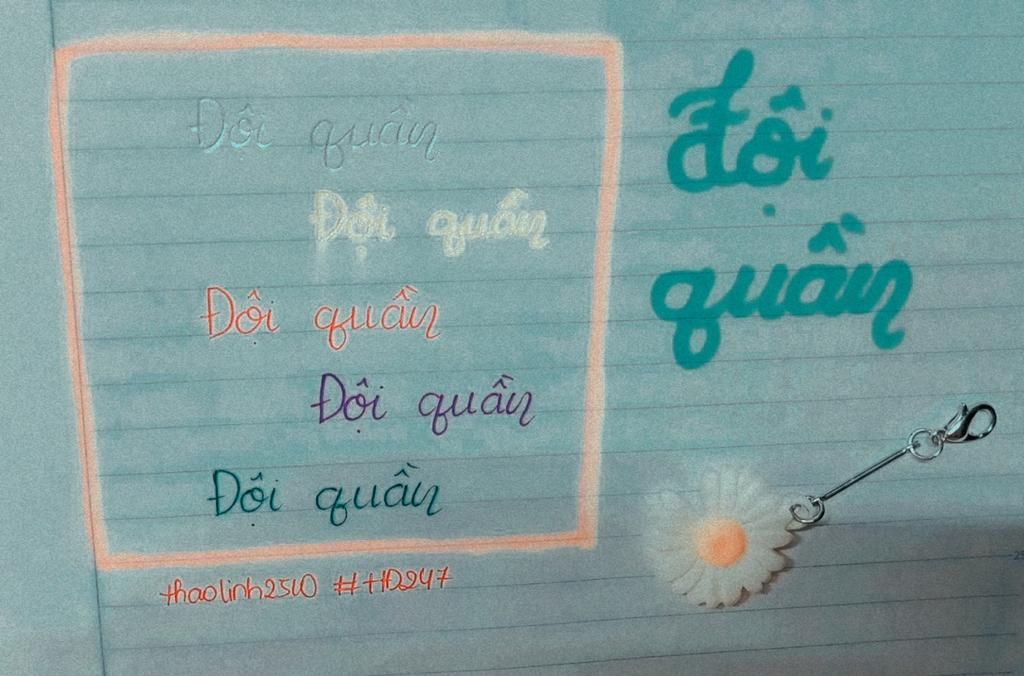 Đội quần
Đội quần
Đội quần
Đội quần
Đội quần
thaolinh2510 #HD247
đội
quần